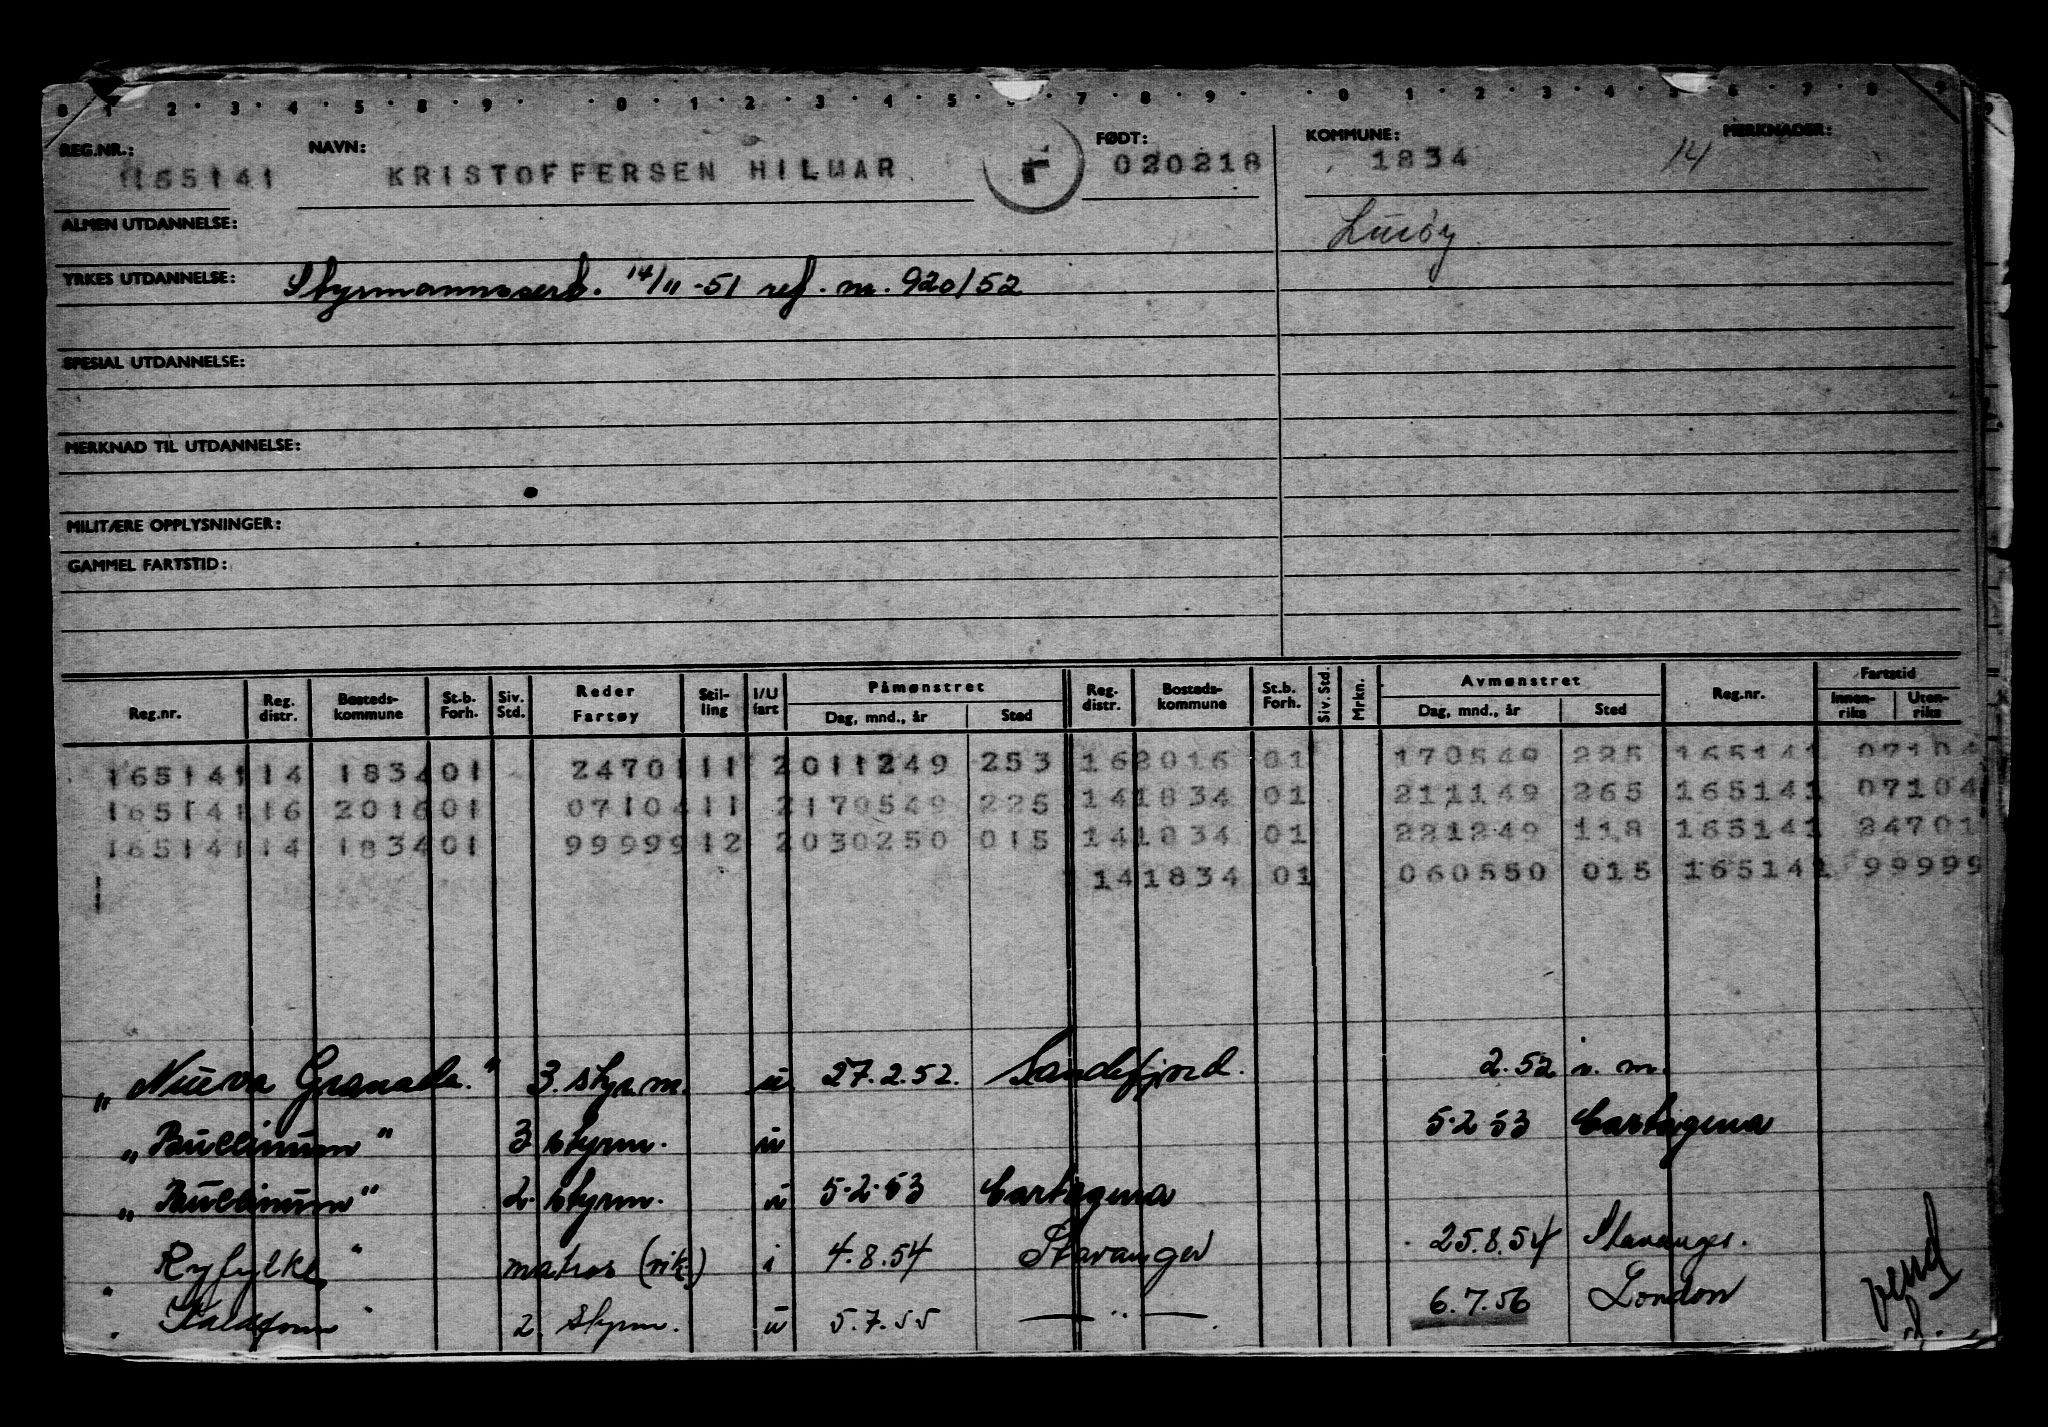 REG.NR.: NAVN: FØDT: KOMMUNE: MERKNADER:
165141 KRISTOFFERSEN HILMAR 020218 1834 14
ALMEN UTDANNELSE: Lurøy
YRKES UTDANNELSE: Styrmannssert. 14/11-51 ref. nr. 920/52
SPESIAL UTDANNELSE:
MERKNAD TIL UTDANNELSE:
MILITÆRE OPPLYSNINGER:
GAMMEL FARTSTID:
Reg.nr. Reg. distr. Bosteds-kommune St.b. Forh. Siv. Std. Reder Fartøy Stil-ling I/U fart Påmønstret Dag, mnd., år Sted Reg. distr. Bosteds-kommune St.b. Forh. Siv. Std. Mrkn. Avmønstret Dag, mnd., år Sted Reg.nr. Fartstid Innen-riks Uten-riks
165141 14 1834 01 24701 11 2 011249 253 16 2016 01 170549 225 165141 07104
165141 16 2016 01 07104 11 2 170549 225 14 1834 01 211149 265 165141 07104
165141 14 1834 01 99999 12 2 030250 015 14 1834 01 221249 118 165141 24701
14 1834 01 060550 015 165141 99999
"Nueva Granada." 3. styrm. u 27.2.52. Sandefjord. 2.52 n. m.
"Buccinum" 3 styrm. u 5.2 53 Cartagena
"Buccinum" 2. styrm. u 5.2.53 Cartagena
" Ryfylke " matros (vik.) i 4.8.54 Stavanger 25.8.54 Stavanger.
" Kaldfonn " 2. styrm. u 5.7.55 — " — 6.7.56 London
vend